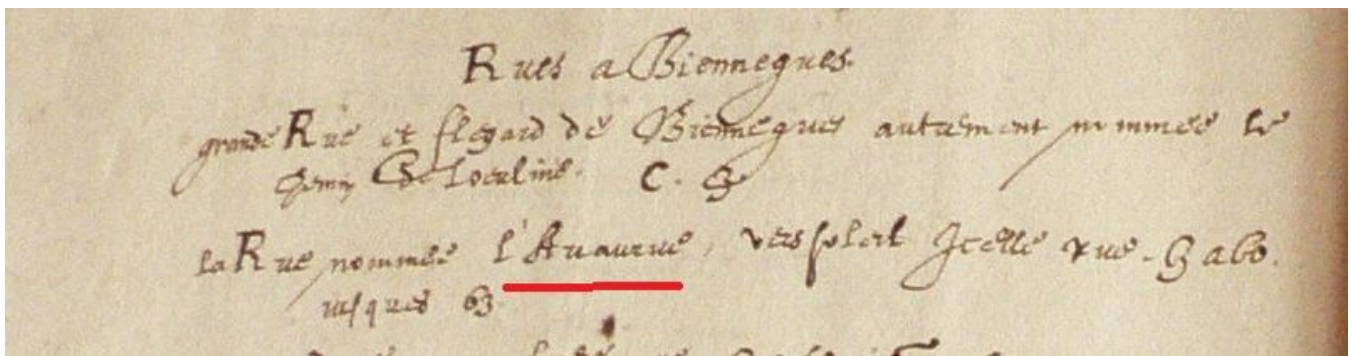 Rues a Biennegues.
grande Rue et flegard de Biennegues autrement nommee le
chemin de Loculine. C.
la Rue nommée l'Auaurue, vers soleil Icelle rue.
jusques 63